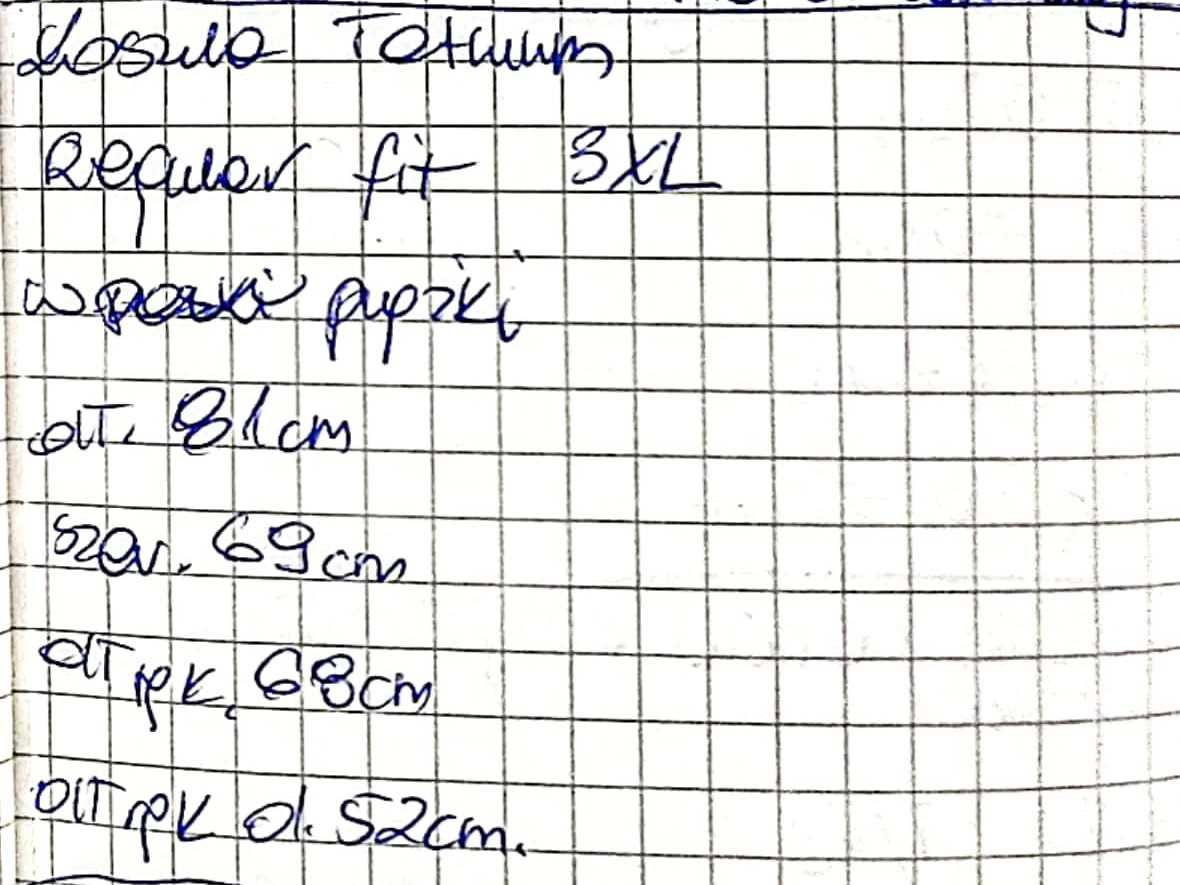 Koszula Tatuum
Regular fit 3XL
w
dł. 81cm
szer. 69cm
dł ręk. 68cm
dł ręk d. 52cm.